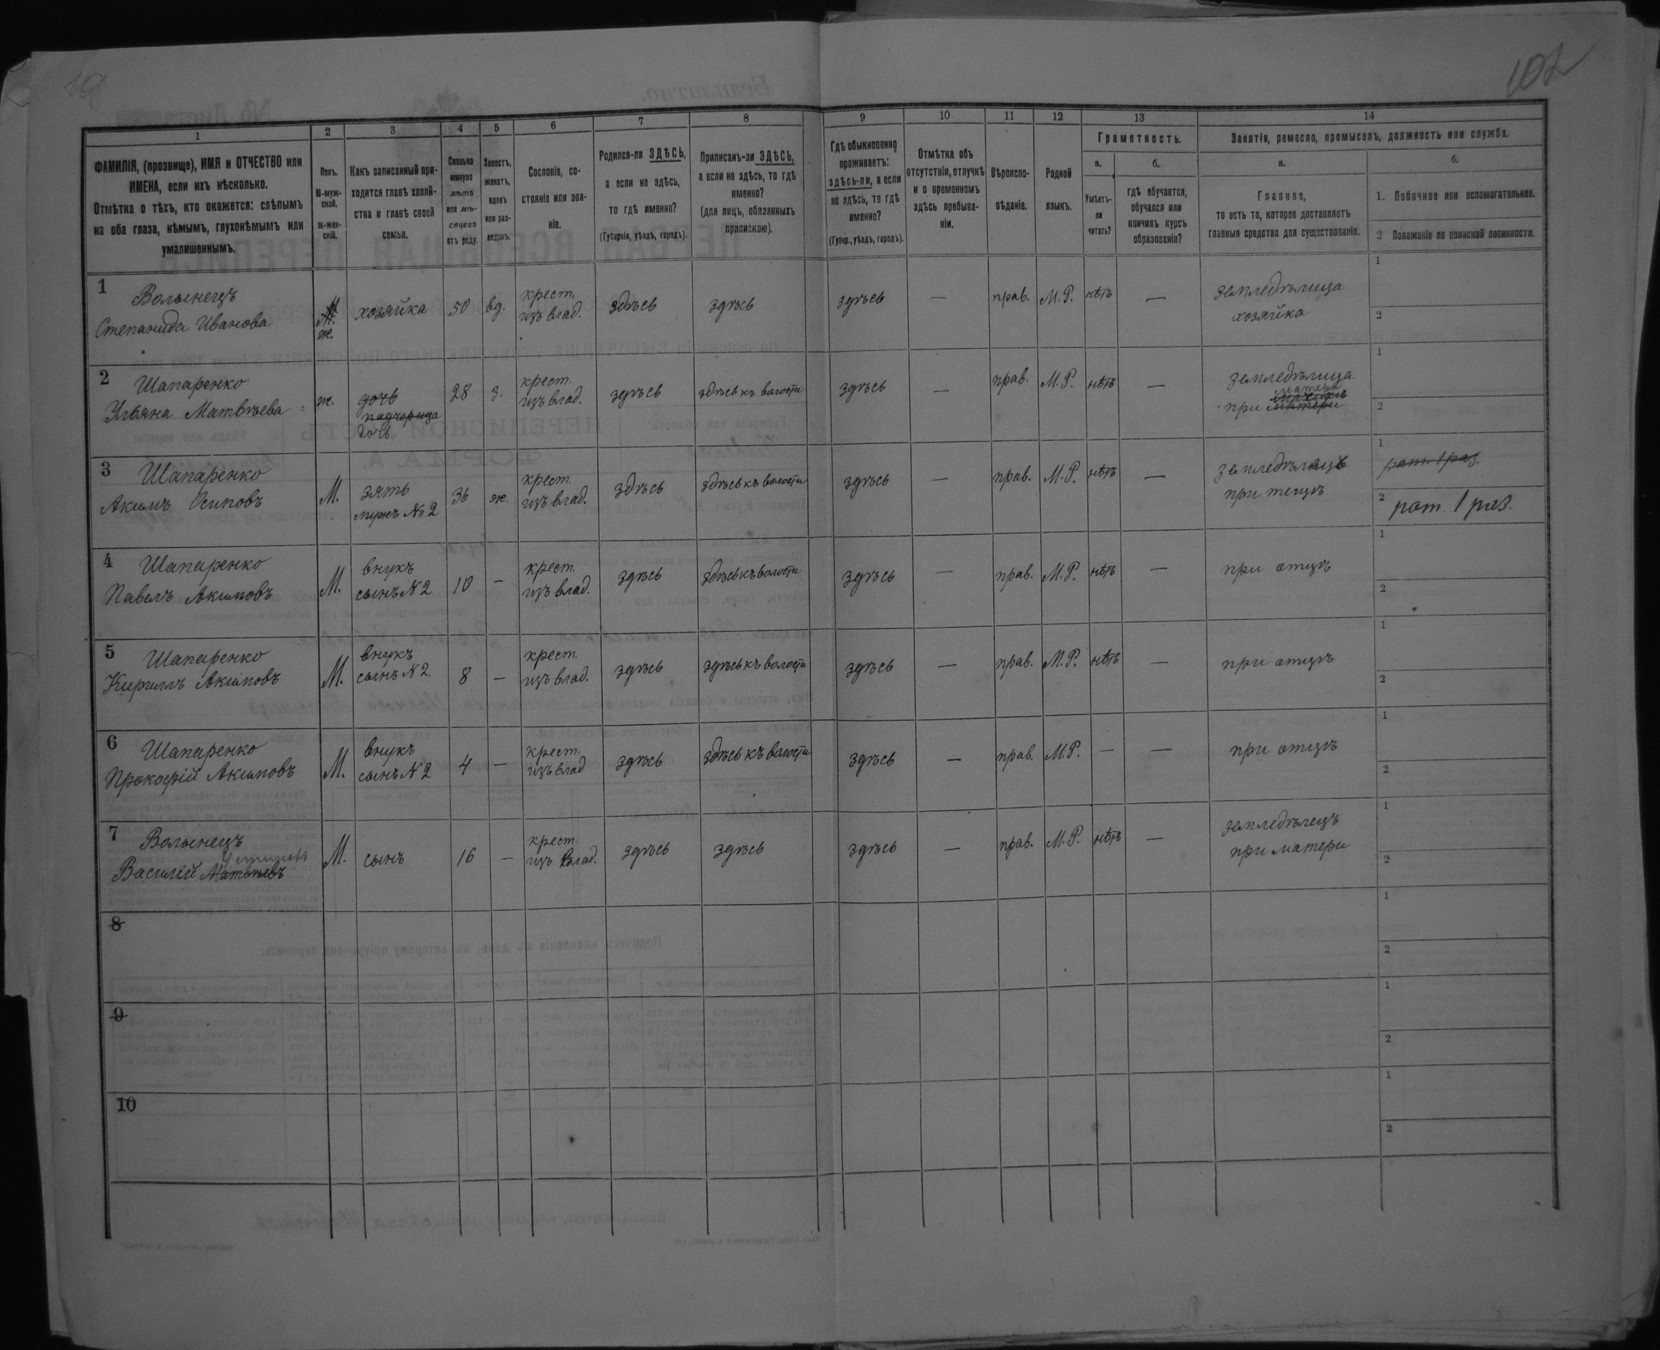 102
1
2
3
4
5
6
7
8
9
10
11
12
13
14
ФАМИЛІЯ, (прозвище), ИМЯ и ОТЧЕСТВО или
ИМЕНА, если ихъ нѣсколько.
Отмѣтка о тѣхъ, кто окажется: слѣпымъ
на оба глаза, нѣмымъ, глухонѣмымъ или
умалишеннымъ.
Полъ.
М-муж-
ской.
Ж-жен-
скій.
Какъ записанный при-
ходится главѣ хозяй-
ства и главѣ своей
семьи.
Сколько
минуло
лѣтъ
или мѣ-
сяцевъ
отъ роду.
Холостъ,
женатъ,
вдовъ
или раз-
веденъ.
Сословіе, со-
стояніе или зва-
ніе.
Родился-ли ЗДѢСЬ,
а если не здѣсь,
то гдѣ именно?
(Губернія, уѣздъ, городъ).
Приписанъ-ли ЗДѢСЬ,
а если не здѣсь, то гдѣ
именно?
(для лицъ, обязанныхъ
припискою).
Гдѣ обыкновенно
проживаетъ:
здѣсь-ли, а если
не здѣсь, то гдѣ
именно?
(Губер., уѣздъ, городъ).
Отмѣтка объ
отсутствіи, отлучкѣ
и о временномъ
здѣсь пребыва-
ніи.
Вѣроиспо-
вѣданіе.
Родной
языкъ.
Грамотность.
а.
Умѣетъ-
ли
читать?
б.
гдѣ обучается,
обучался или
кончилъ курсъ
образованія?
Занятіе, ремесло, промыселъ, должность или служба.
а.
Главное,
то есть то, которое доставляетъ
главныя средства для существованія.
б.
1. Побочное или вспомогательное.
2 Положеніе по воинской повинности.
1 Волынецъ
Степанида Иванова
М. ж.
хозяйка
50
вд.
крест.
изъ влад.
здѣсь
здѣсь
здѣсь
—
прав.
М.Р.
нѣтъ
—
земледѣлица
хозяйка
1
2
2 Шапаренко
Ульяна Матвѣева
ж.
дочь
падчерица
дочь
28
з.
крест.
изъ влад.
здѣсь
здѣсь къ волости
здѣсь
—
прав.
М.Р.
нѣтъ
—
земледѣлица
при матери
1
2
3 Шапаренко
Акимъ Осиповъ
М.
зять
мужъ № 2
36
ж.
крест.
изъ влад.
здѣсь
здѣсь къ волости
здѣсь
—
прав.
М.Р.
нѣтъ
—
земледѣлецъ
при тещѣ
1 рат. 1 раз.
2 рат. 1 раз.
4 Шапаренко
Павелъ Акимовъ
М.
внукъ
сынъ N 2
10
—
крест.
изъ влад.
здѣсь
здѣсь къ волости
здѣсь
—
прав.
М.Р.
нѣтъ
—
при отцѣ
1
2
5 Шапаренко
Кириллъ Акимовъ
М.
внукъ
сынъ N 2
8
—
крест.
изъ влад.
здѣсь
здѣсь къ волости
здѣсь
—
прав.
М.Р.
нѣтъ
—
при отцѣ
1
2
6 Шапаренко
Прокофій Акимовъ
М.
внукъ
сынъ N 2
4
—
крест.
изъ влад
здѣсь
здѣсь къ волости
здѣсь
—
прав.
М.Р.
—
—
при отцѣ
1
2
7 Волынецъ
Василій Матвѣевъ
М.
сынъ
16
—
крест.
изъ влад.
здѣсь
здѣсь
здѣсь
—
прав.
М.Р.
нѣтъ
—
земледѣлецъ
при матери
1
2
8
1
2
9
1
2
10
1
2